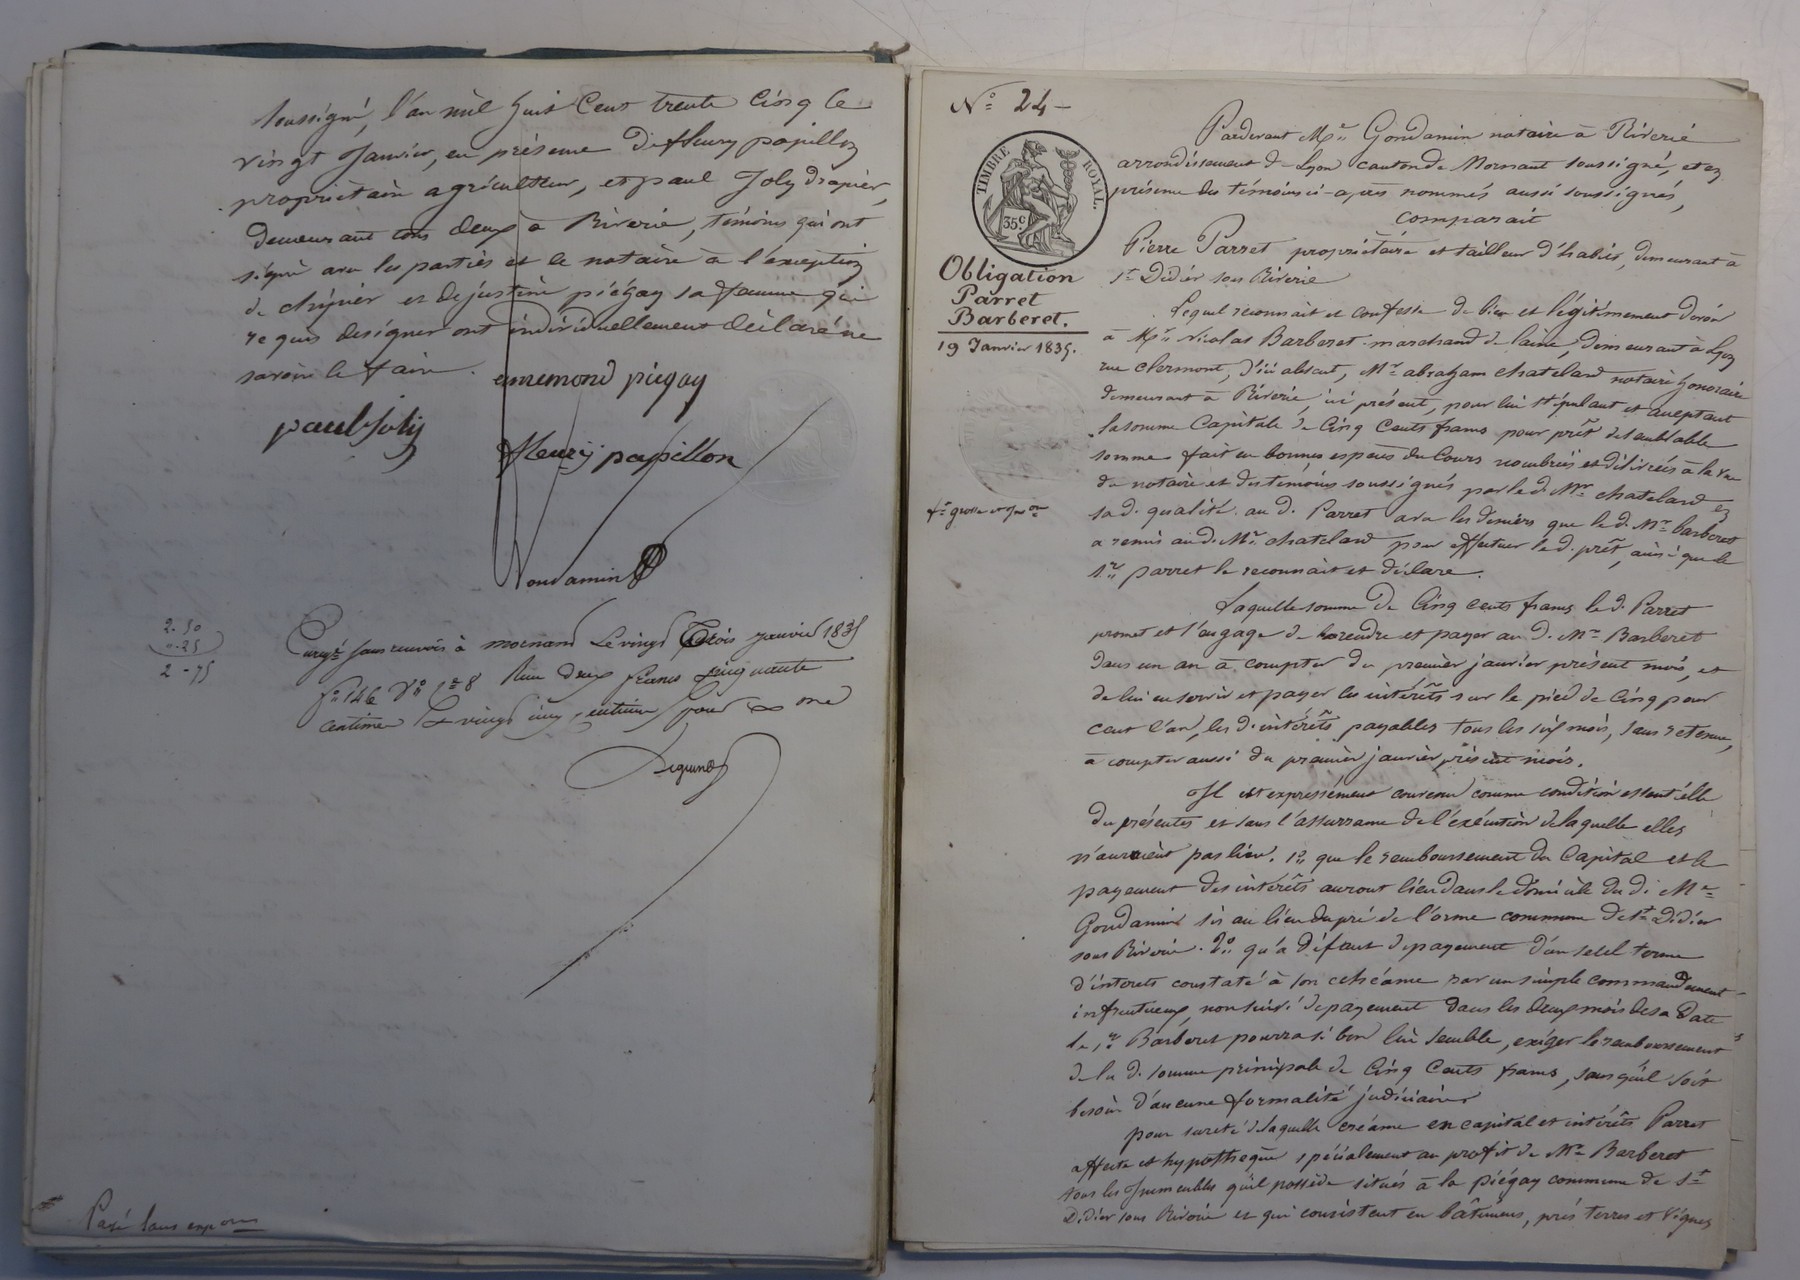 soussigné, l'an mil huit Cent trente Cinq le
vingt Janvier, en présence de fleury papillon
propriétaire agriculteur, et paul Joly drapier,
demeurant tous deux à Riverie, témoins qui ont
signé avec les parties et le notaire à l'exception
de et de justine piégay sa femme qui
requis de signer ont individuellement déclaré ne
savoir le faire.
enremond piegay
paul Joly
fleury papillon
Gondamin
2-50
"-25
2-75
Enregé sans renvois à mornand le vingt trois janvier 1835
fo 146 Vo Ce 8 Reçu deux francs cinquante
centimes & vingt cinq centimes pour
Payé sans exp
No 24-
TIMBRE ROYAL.
35c
Obligation
Parret
Barberet.
19 Janvier 1835.
fte grosse et
Pardevant Me Gondamin notaire à Riverié
arrondissement de Lyon canton de Mornant soussigné, et en
présence des témoins ci-après nommés aussi soussignés,
Comparait
Pierre Parret propriétaire et tailleur d'habits, demeurant à
St Didier sous Riverie
Lequel reconnait et confesse de bien et légitimement devoir
à Mr Nicolas Barberet marchand de laine, demeurant à Lyon
rue clermont, d'ici absent, Mr abraham chatelard notaire honoraire
demeurant à Riverié, ici présent, pour lui stipulant et acceptant
la somme Capitale de Cinq Cents francs pour prêt de semblable
somme fait en bonnes espèces du Cours nombrées et délivrées à la vue
du notaire et des témoins soussignés par le d. Mr chatelard en
sa d. qualité au d. Parret avec les deniers que le d. Mr Barberet
a remis au d. Mr chatelard pour effectuer le d. prêt, ainsi que le
Sr parret le reconnait et déclare.
Laquelle somme de Cinq cents francs le d. Parret
promet et s'engage de rendre et payer au d. Mr Barberet
dans un an à compter du premier janvier présent mois, et
de lui en servir et payer les intérêts sur le pied de Cinq pour
cent l'an, les d. intérêts payables tous les six mois, sans retenue,
à compter aussi du premier janvier présent mois.
Il est expressément convenu comme condition essentielle
des présentes et sans l'assurrance de l'exécution de laquelle elles
n'auroient pas lieu. 1o que le remboursement du Capital et le
payement des intérêts auront lieu dans le domicile du d. Me
Gondamin sis au lieu du pré de l'orme commune de St Didier
sous Riverie. 2o qu'à défaut de payement d'un seul terme
d'intérets constaté à son echéance par un simple commandement
infructueux, non suivi de payement dans les deux mois de sa Date
le Sr Barberet pourra si bon lui semble, exiger le remboursement
de la d. somme principale de Cinq Cents francs, sans qu'il soit
besoin d'aucune formalité judiciaire
pour sureté de laquelle créance en capital et intérêts Parret
affecte et hypothèque spécialement au profit de Mr Barberet
tous les Immeubles qu'il possède situés à la piégay commune de St
Didier sous Riverie et qui consistent en bâtimens, prés terres et vignes